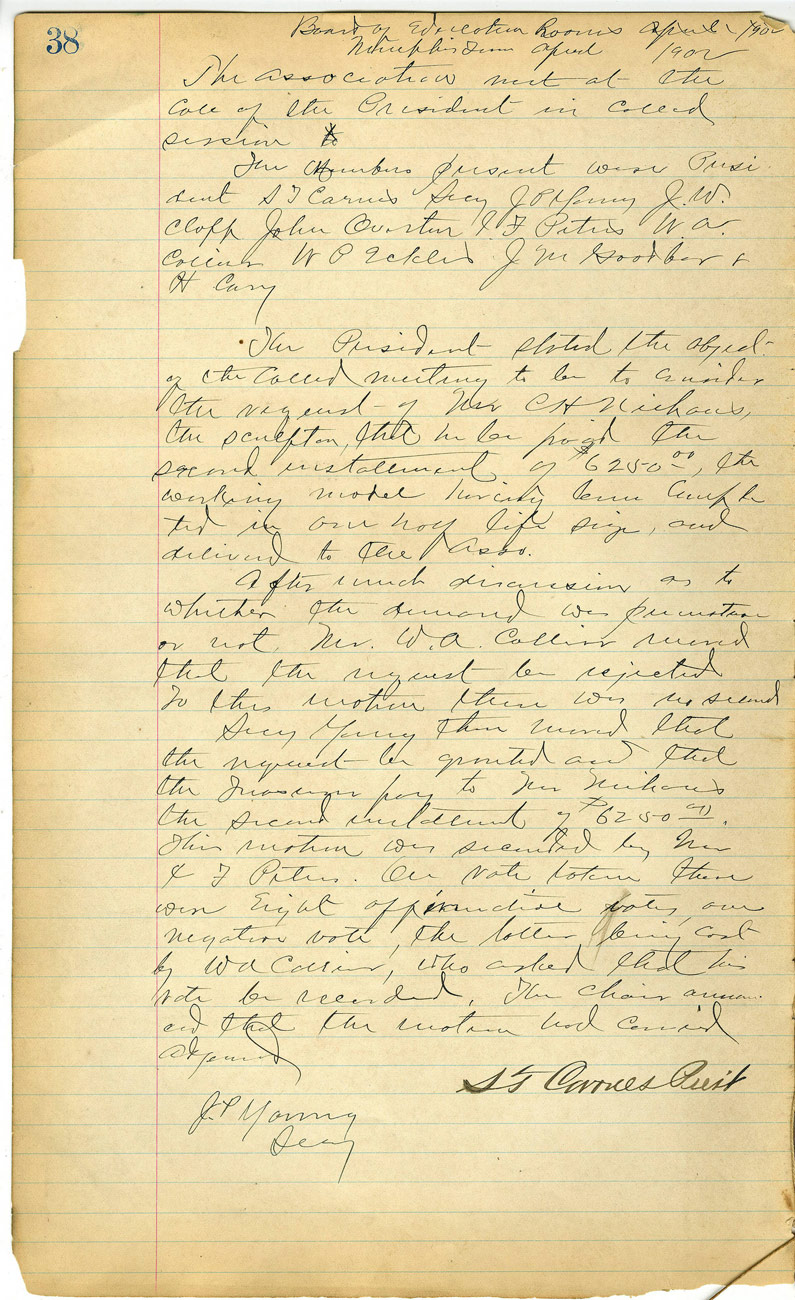 38
Board of Education Rooms April 1902
Memphis Tenn April 1902
The association met at the
Call of the President in called
session
The Members present were Presi
dent S T Carnes Secy J P Young J. W.
Clapp John Overton & F Peters W. A.
Collier W P Eckles J M Goodbar &
H Cary
The President stated the object
of the Called meeting to be to consider
the request of Mr C H Niehaus,
the sculptor, that he be paid the
second installment of $6250 00, the
working model having been Comple
ted in one half life size, and
delivered to the Asso.
After much discussion as to
whether the demand was premature
or not, Mr. W. A. Collier moved
that the request be rejected
To this motion there was no second
Secy Young then moved that
the request be granted and that
the Treasurer pay to Mr Niehaus
the second installment of $6250 00.
This motion was seconded by Mr
& F Peters. On vote taken there
were Eight affirmative votes, one
negative vote, the latter being cast
by W A Collier, who asked that his
vote be recorded. The chair announ
ced that the motion had carried
Adjourned
S T Carnes Prest
J. P Young
Secy